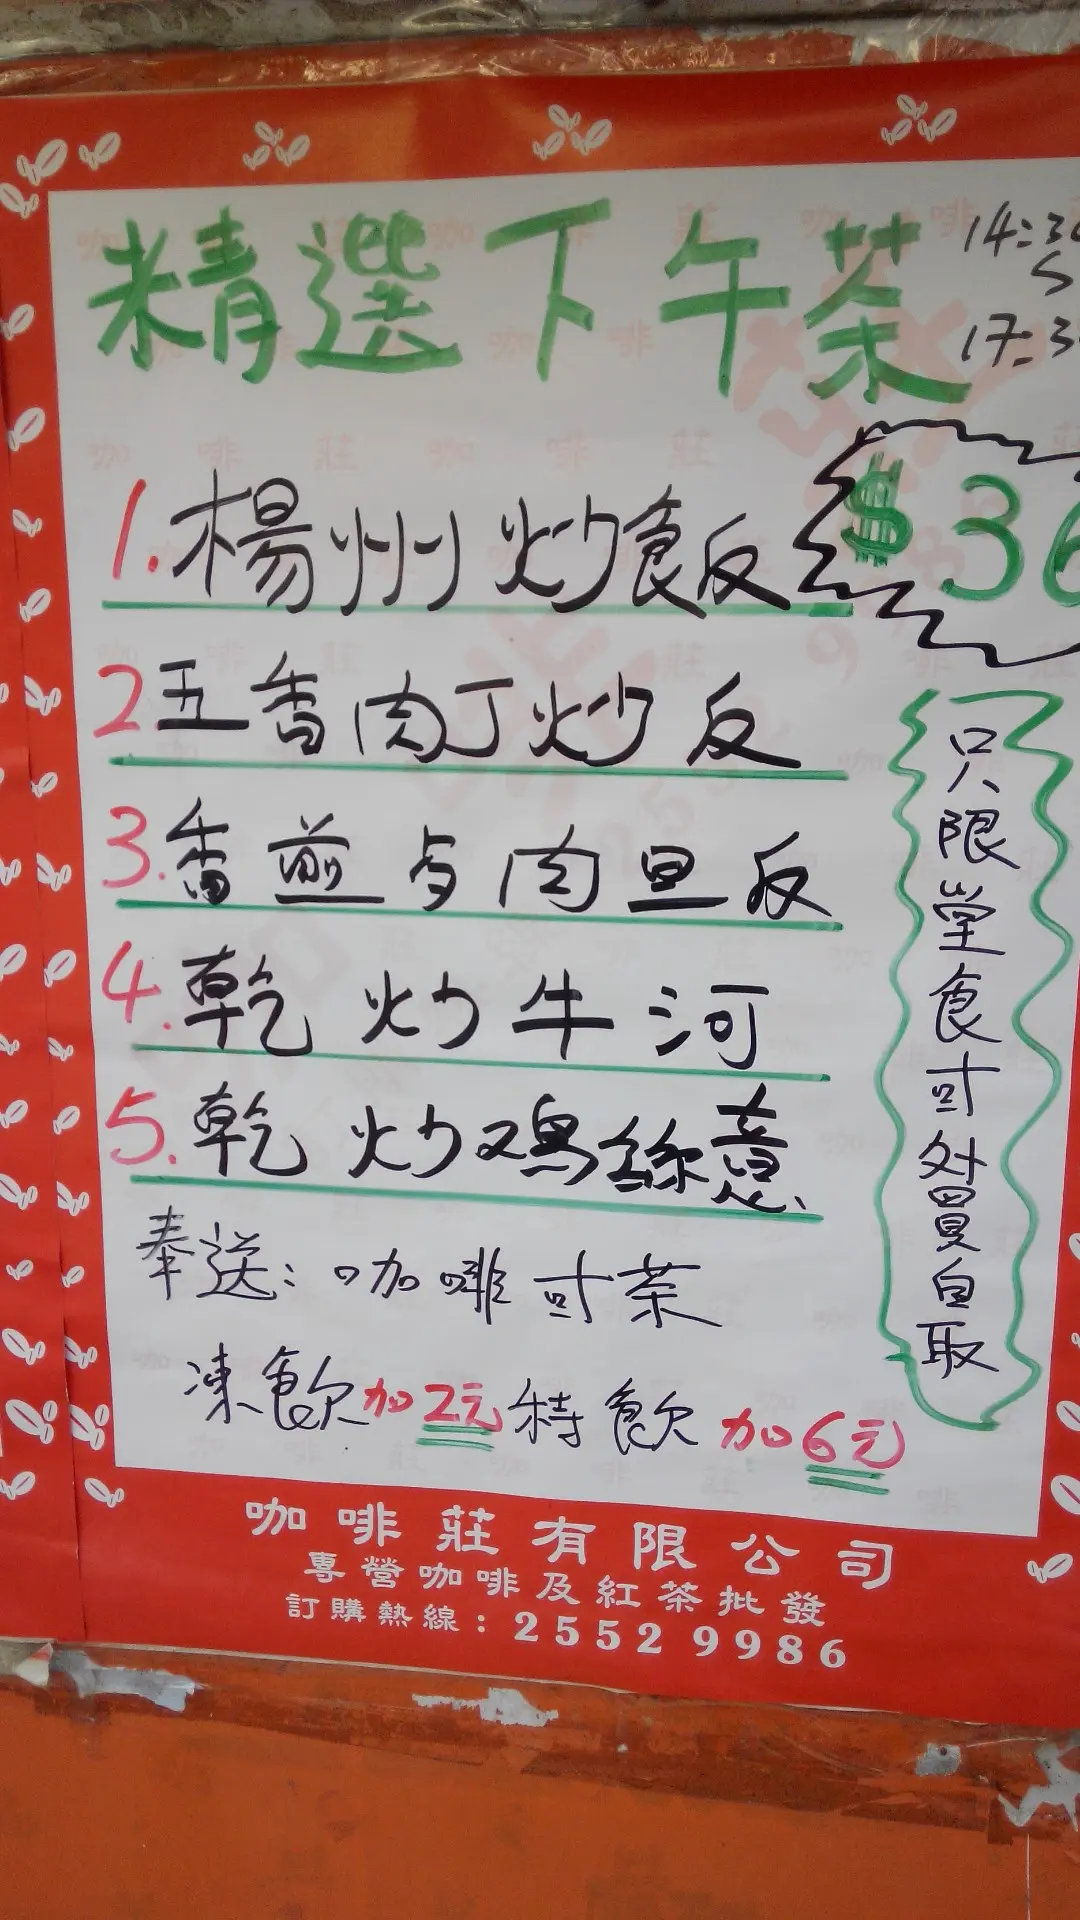 精選下午茶
14:30
17:3
$36
1.楊州炒飯
2.五香肉丁炒反
3.香煎与肉旦反
4.乾炒牛河
5.乾炒鸡絲意
奉送：咖啡或茶
凍飲加2元 特飲加6元
只限堂食或外買自取
咖啡莊有限公司
專營咖啡及紅茶批發
訂購熱線：2552 9986